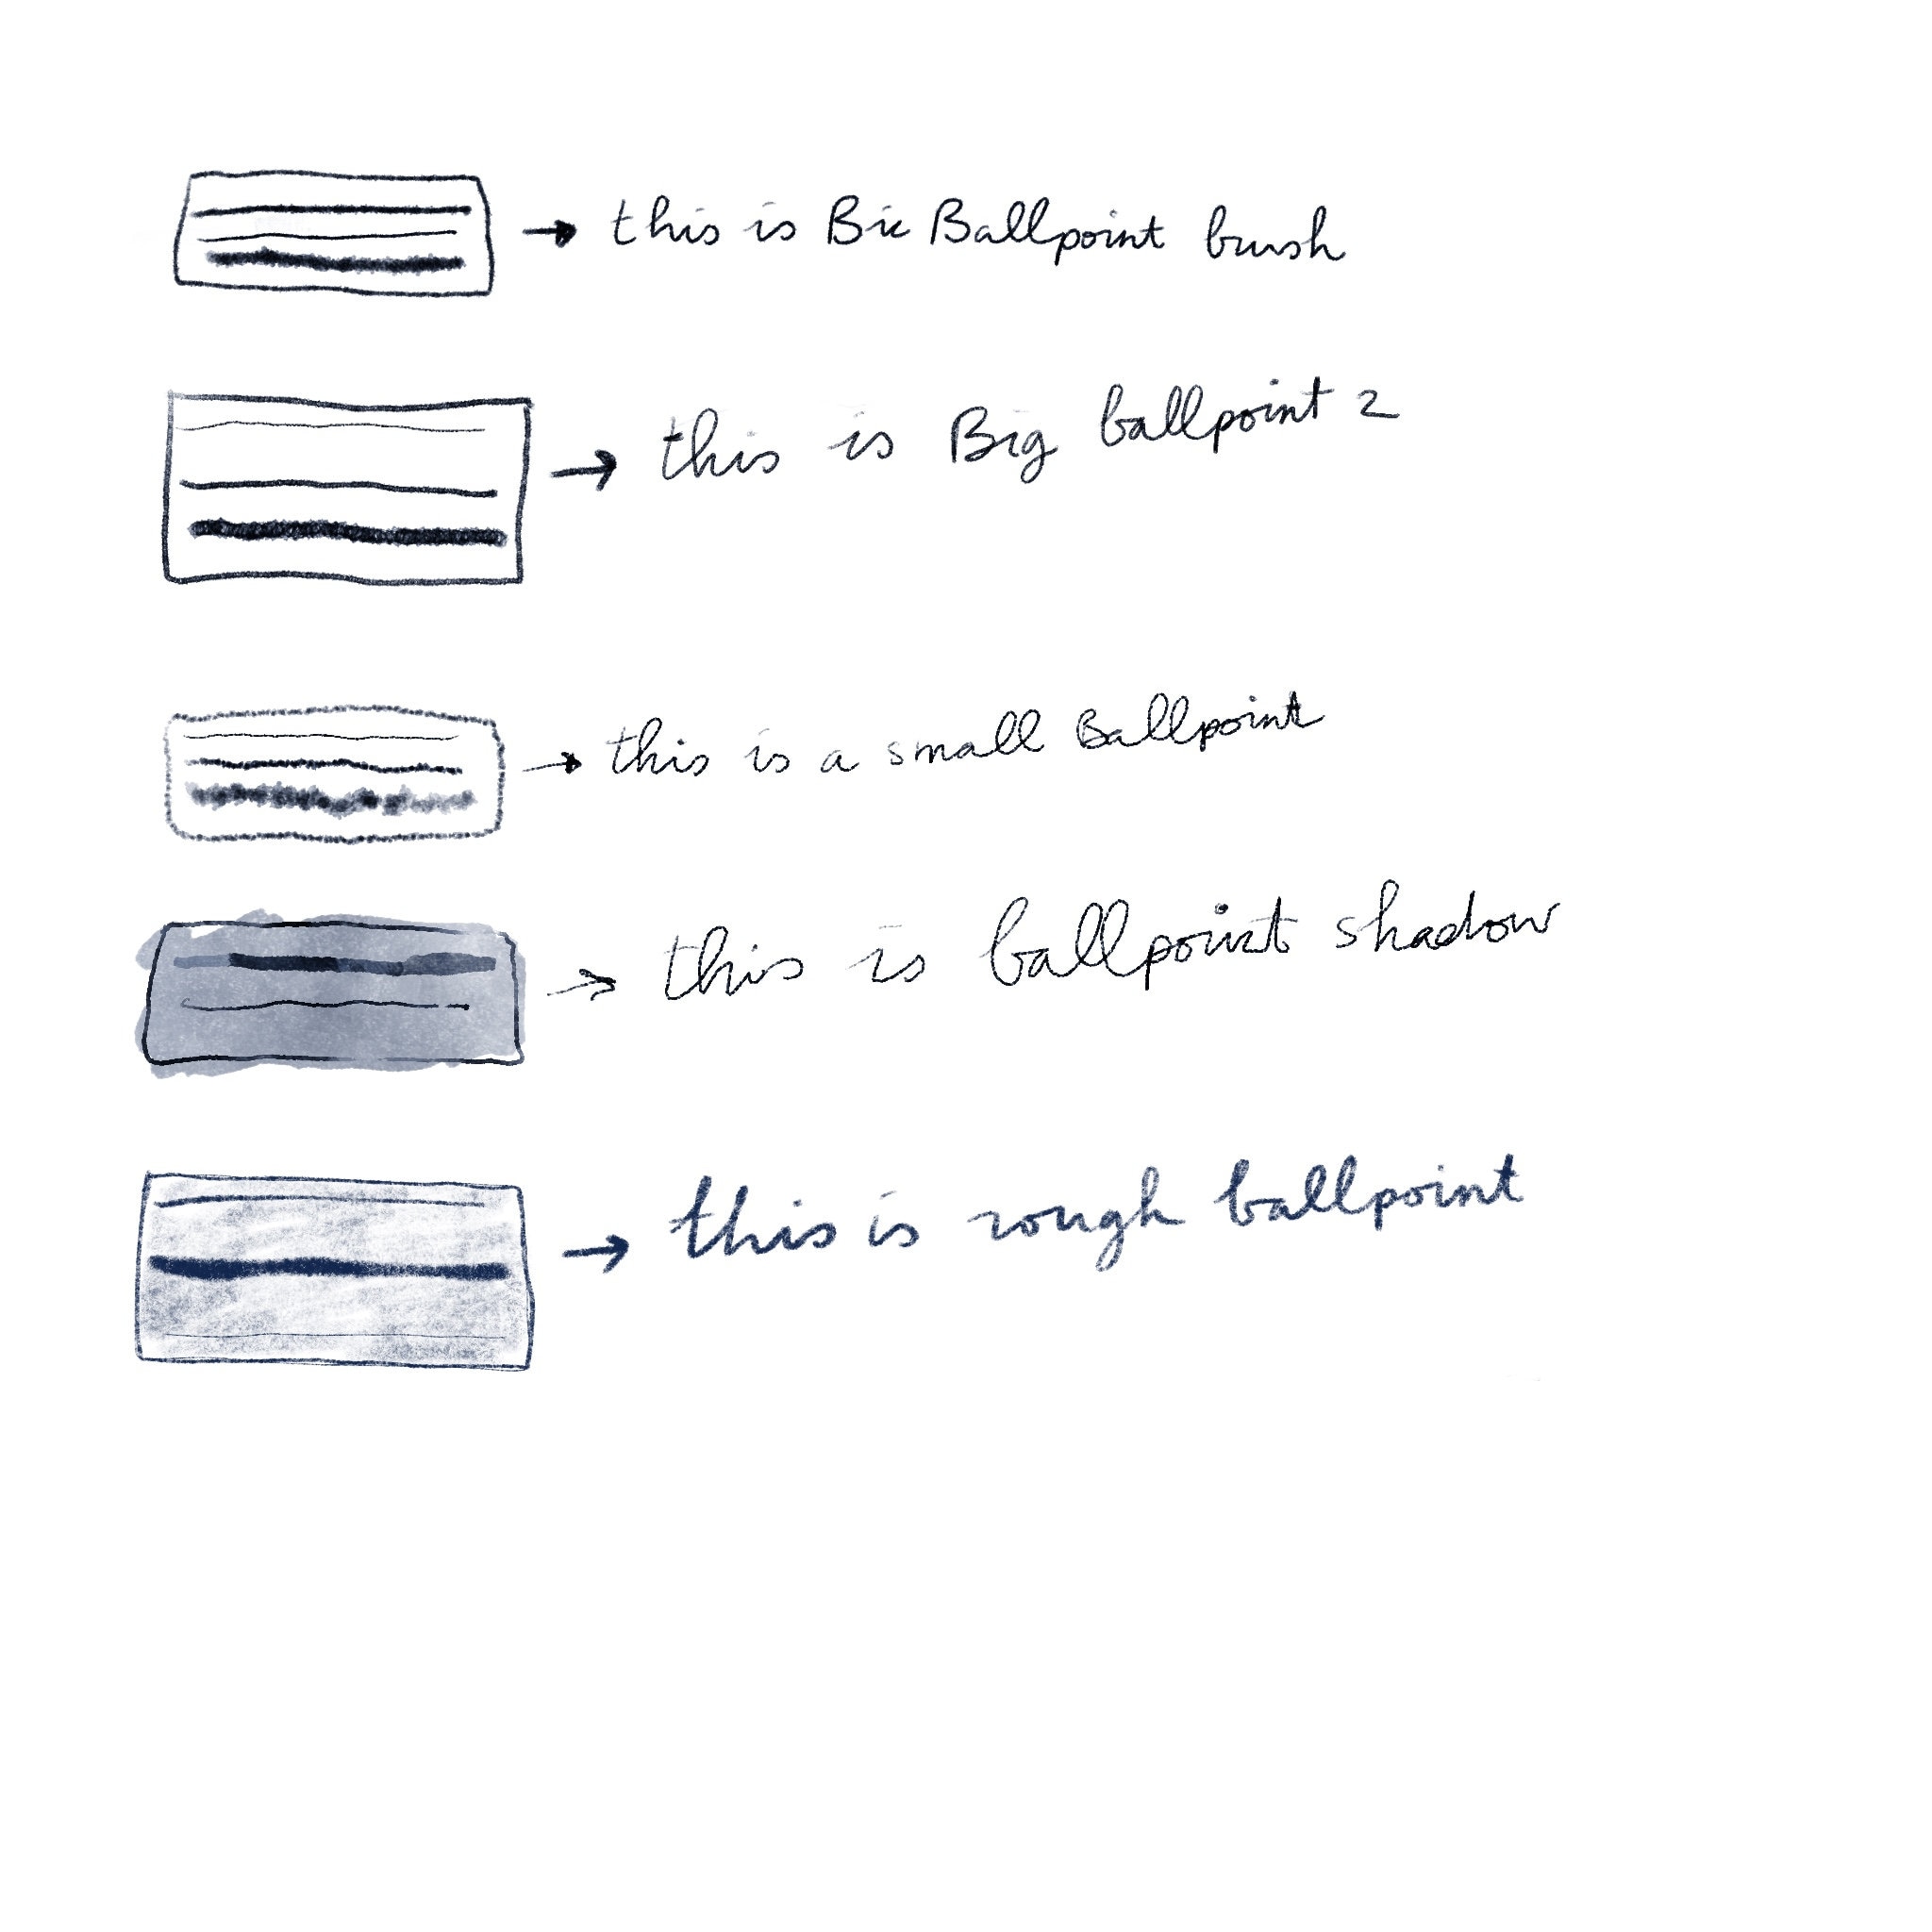 this is Bic Ballpoint brush
this is Big ballpoint 2
this is a small Ballpoint
this is ballpoint shadow
this is rough ballpoint